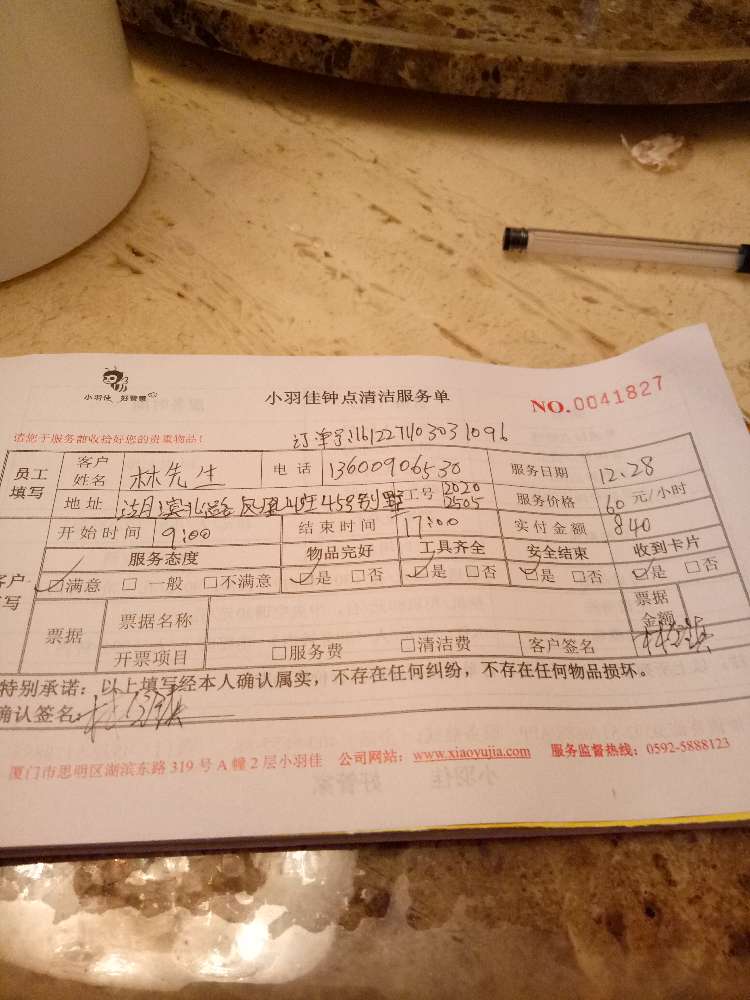 小羽佳 好管家
小羽佳钟点清洁服务单
NO.0041827
请您于服务前收拾好您的贵重物品!
订单号1612271403031096
员工填写 客户姓名 林先生 电话 13600906530 服务日期 12.28
地址 湖滨北路 凤凰山庄45号别墅 工号 2020 2505 服务价格 60元/小时
开始时间 9:00 结束时间 17:00 实付金额 840
服务态度 物品完好 工具齐全 安全结束 收到卡片
☑满意 □一般 □不满意 ☑是 □否 ☑是 □否 ☑是 □否 ☑是 □否
票据 票据名称 票据金额
开票项目 □服务费 □清洁费 客户签名
特别承诺：以上填写经本人确认属实，不存在任何纠纷，不存在任何物品损坏。
确认签名:
厦门市思明区湖滨东路 319 号 A 幢 2 层小羽佳 公司网站：www.xiaoyujia.com 服务监督热线：0592-5888123